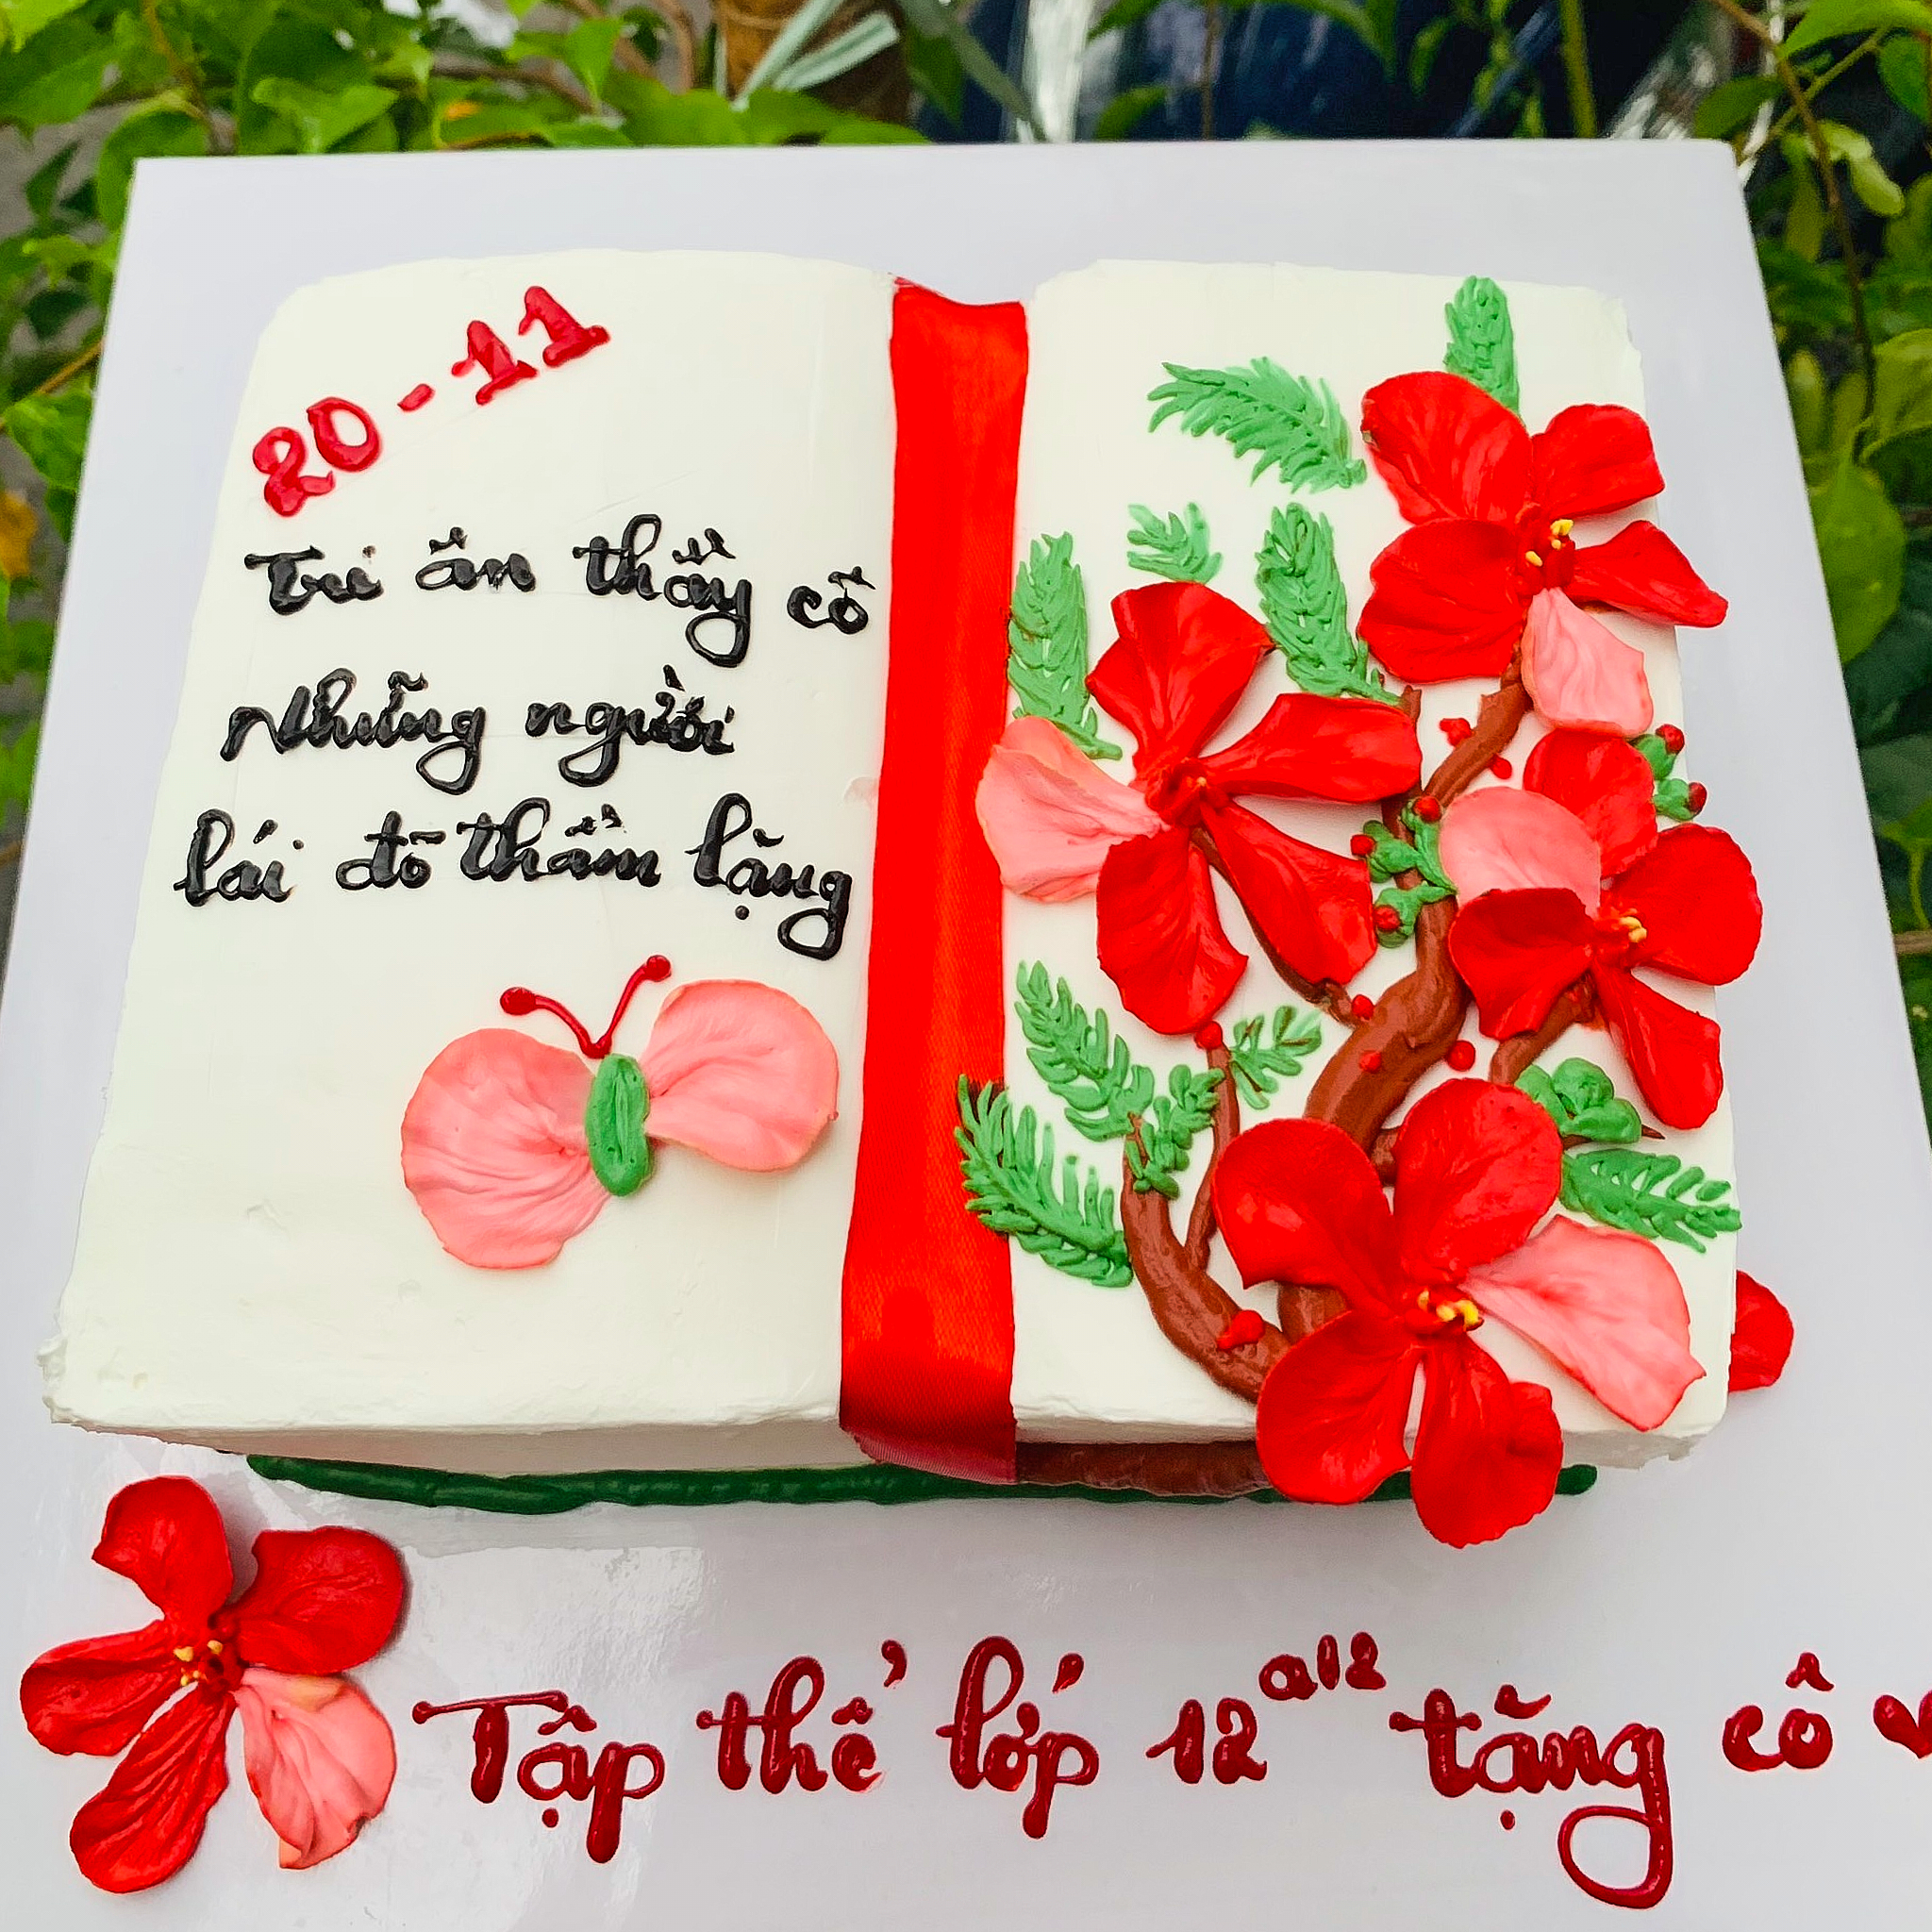 20-11
Tri ân thầy cô
Những người
lái đò thầm lặng
Tập thể lớp 12a12 tặng cô